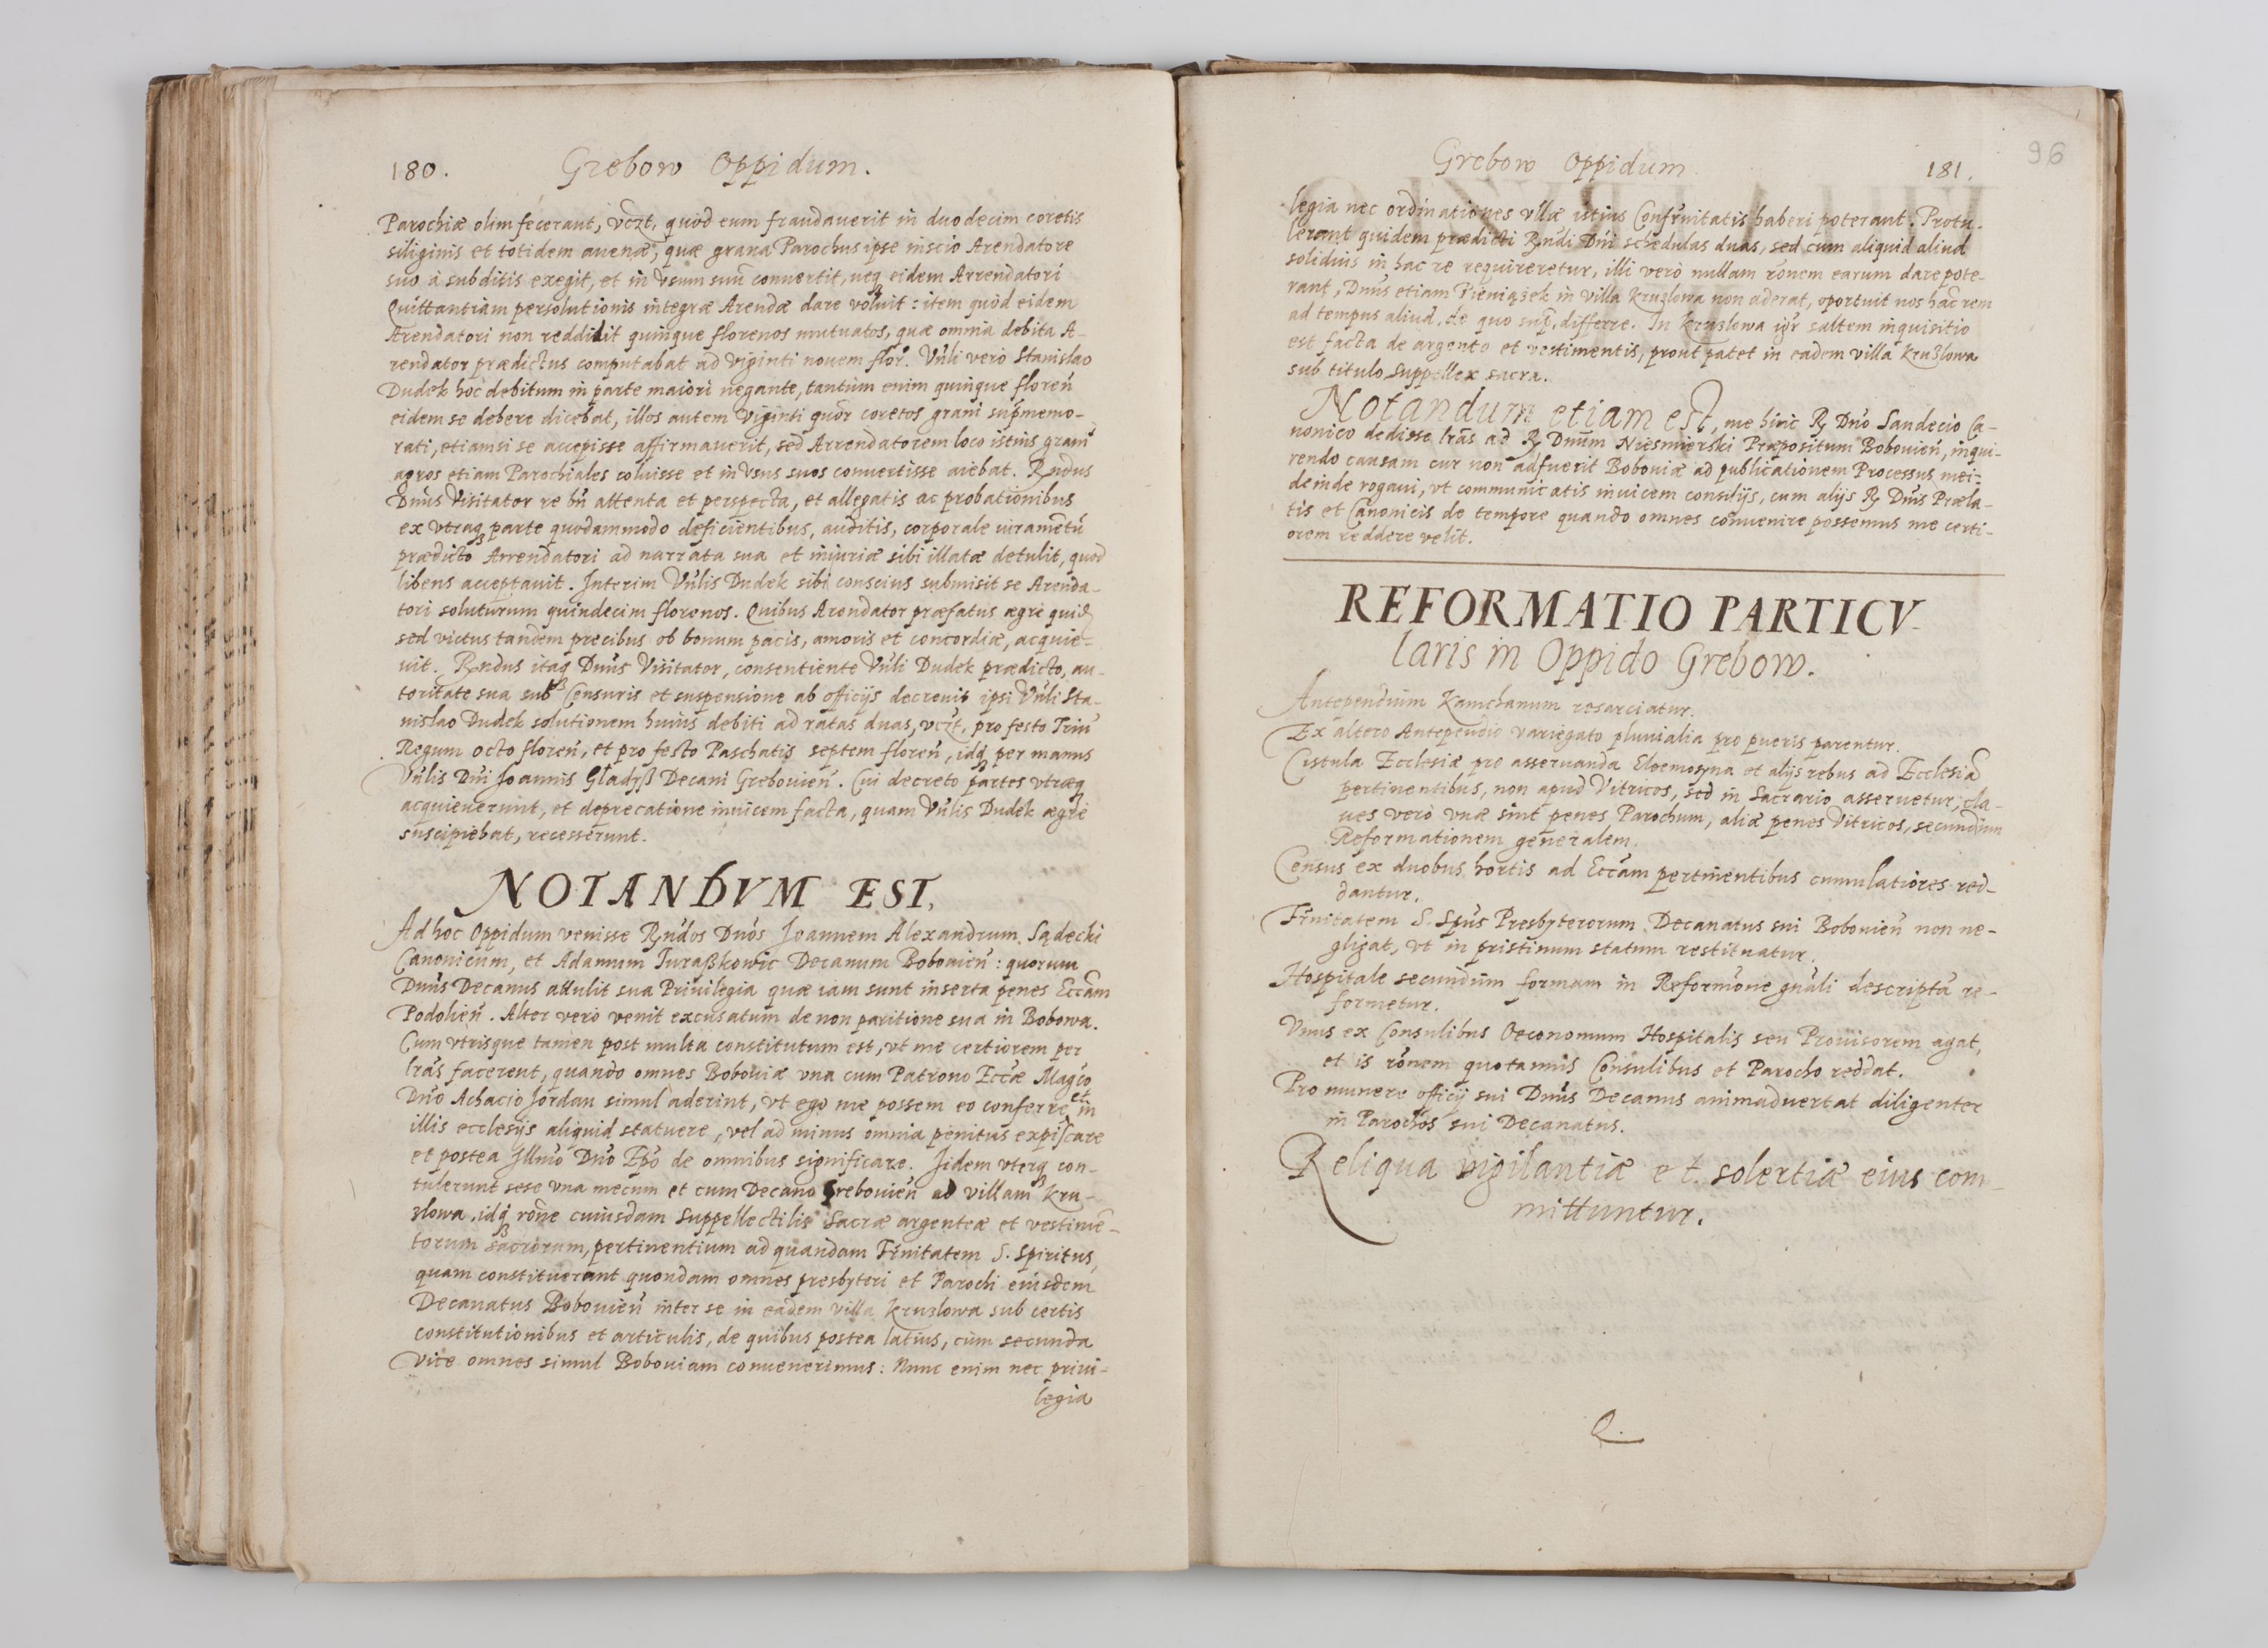 180. Grebow Oppidum.
Parochiæ olim fecerant, vczt, quòd eum fraudauerit in duodecim coretis
siliginis et totidem auenæ, quæ grana Parochus ipse inscio Arendatore
suo à subditis exegit, et in vsum suũ conuertit, neq eidem Arrendatori
Quittantiam persolutionis integræ Arendæ dare voluit: item quòd eidem
Arendatori non reddidit quinque florenos mutuatos, quæ omnia debita A-
rendator prædictus computabat ad viginti nouem flor. Vnli verò Stanislao
Dudek hoc debitum in parte maiori negante, tantùm enim quinque floreñ
eidem se debere dicebat, illos autem viginti quõr coretos grani sup̃memo-
rati, etiamsi se accepisse affirmauerit, sed Arrendatorem loco istius grani
agros etiam Parochiales coluisse et in vsus suos conuertisse aiebat. Rndus
Dnus Visitator re bñ attenta et perspecta, et allegatis ac probationibus
ex vtraq parte quodammodo deficientibus, auditis, corporale iuramẽtũ
prædicto Arrendatori ad narrata sua et iniuriæ sibi illatæ detulit, quod
libens acceptauit. Interim Vnlis Dudek sibi conscius submisit se Arenda-
tori soluturum quindecim florenos. Quibus Arendator præfatus ægrè quid
sed victus tandem precibus ob bonum pacis, amoris et concordiæ, acquie-
uit. Rndus itaq Dnus Visitator, consentiente Vnli Dudek prædicto, au-
toritate sua sub Censuris et suspensione ab officijs decreuit ipsi Vnli Sta-
nislao Dudek solutionem huius debiti ad ratas duas, vczt, pro festo Triũ
Regum octo floreñ, et pro festo Paschatis septem floreñ, idq per manus
Vnlis Dni Joannis Gładyß Decani Grebouieñ. Cui decreto partes vtræq
acquieuerunt, et deprecatione inuicem facta, quam Vnlis Dudek ægrè
suscipiebat, recesserunt.
NOTANDVM EST,
Ad hoc Oppidum venisse Rndos Dnos Joannem Alexandrum Sądecki
Canonicum, et Adamum Juraßkowic Decanum Bobouieñ: quorum
Dnus Decanus attulit sua Priuilegia quæ iam sunt inserta penes Eccãm
Podolieñ. Alter verò venit excusatum de non paritione sua in Bobowa.
Cum vtrisque tamen post multa constitutum est, vt me certiorem per
lrãs facerent, quando omnes Bobouiæ vna cum Patrono Eccæ Magco
Dno Achacio Jordan simul aderint, vt ego me possem eo conferre et in
illis ecclesijs aliquid statuere, vel ad minus omnia penitus expiscare
et postea Jllmo Dno Epo de omnibus significare. Jidem vterq con-
tulerunt sese vna mecum et cum Decano Grebouieñ ad villam Kru-
zlowa, idq rone cuiusdam Suppellectilis Sacræ argenteæ et vestimẽ-
torum sacrorum, pertinentium ad quandam Frnitatem S. Spiritus,
quam constituerant quondam omnes presbyteri et Parochi eiusdem
Decanatus Bobouieñ inter se in eadem villa Kruzlowa sub certis
constitutionibus et articulis, de quibus postea latius, cùm secunda
vice omnes simul Bobouiam conuenerimus: Nunc enim nec priui-
legia
96
Grebow Oppidum 181.
legia nec ordinationes vllæ istius Confrnitatis haberi poterant. Protu-
lerant quidem prædicti Rndi Dni schedulas duas, sed cum aliquid aliud
solidius in hac re requireretur, illi verò nullam rõnem earum dare pote-
rant, Dnus etiam Pieniążek in villa Kruzlowa non aderat, oportuit nos hãc rem
ad tempus aliud, de quo sup̃, differre. In Kruzlowa igr̃ saltem inquisitio
est facta de argento et vestimentis, prout patet in eadem villa Kruzlowa
sub titulo Suppellex sacra.
Notandum etiam est, me hinc R Dno Sandecio Ca-
nonico dedisse lrãs ad R Dnum Niesmierski Præpositum Bobouieñ, inqui-
rendo causam cur non adfuerit Bobouiæ ad publicationem Processus mei:
deinde rogaui, vt communicatis inuicem consilijs, cum alijs R Dnis Præla-
tis et Canonicis de tempore quando omnes conuenire possemus me certi-
orem reddere velit.
REFORMATIO PARTICV-
laris in Oppido Grebow.
Antependium Kamchanum resarciatur.
Ex altero Antependio variegato pluuialia pro pueris parentur.
Cistula Ecclesiæ pro asseruanda Eleemosyna et alijs rebus ad Ecclesiã
pertinentibus, non apud Vitricos, sed in Sacrario asseruetur, cla-
ues verò vnæ sint penes Parochum, aliæ penes Vitricos, secundùm
Reformationem generalem.
Census ex duobus hortis ad Eccãm pertinentibus cumulatiores red-
dantur.
Frnitatem S. Spũs Presbyterorum Decanatus sui Bobouieñ non ne-
gligat, vt in pristinum statum restituatur.
Hospitale secundùm formam in Reformõne gnãli descriptã re-
formetur.
Vnus ex Consulibus Oeconomum Hospitalis seu Prouisorem agat,
et is rõnem quotannis Consulibus et Parocho reddat.
Pro munere officij sui Dnus Decanus animaduertat diligenter
in Parochos sui Decanatus.
Reliqua vigilantiæ et solertiæ eius com-
mittuntur.